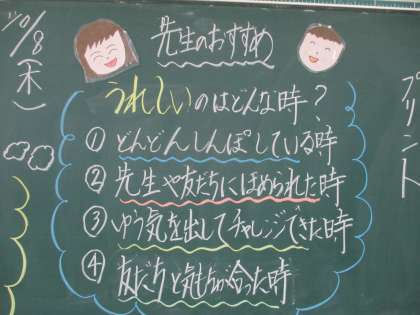 10/8(木)
先生のおすすめ
うれしいのはどんな時?
① どんどんしんぽしている時
② 先生や友だちにほめられた時
③ ゆう気を出してチャレンジできた時
④ 友だちと気もちが合った時
プリント